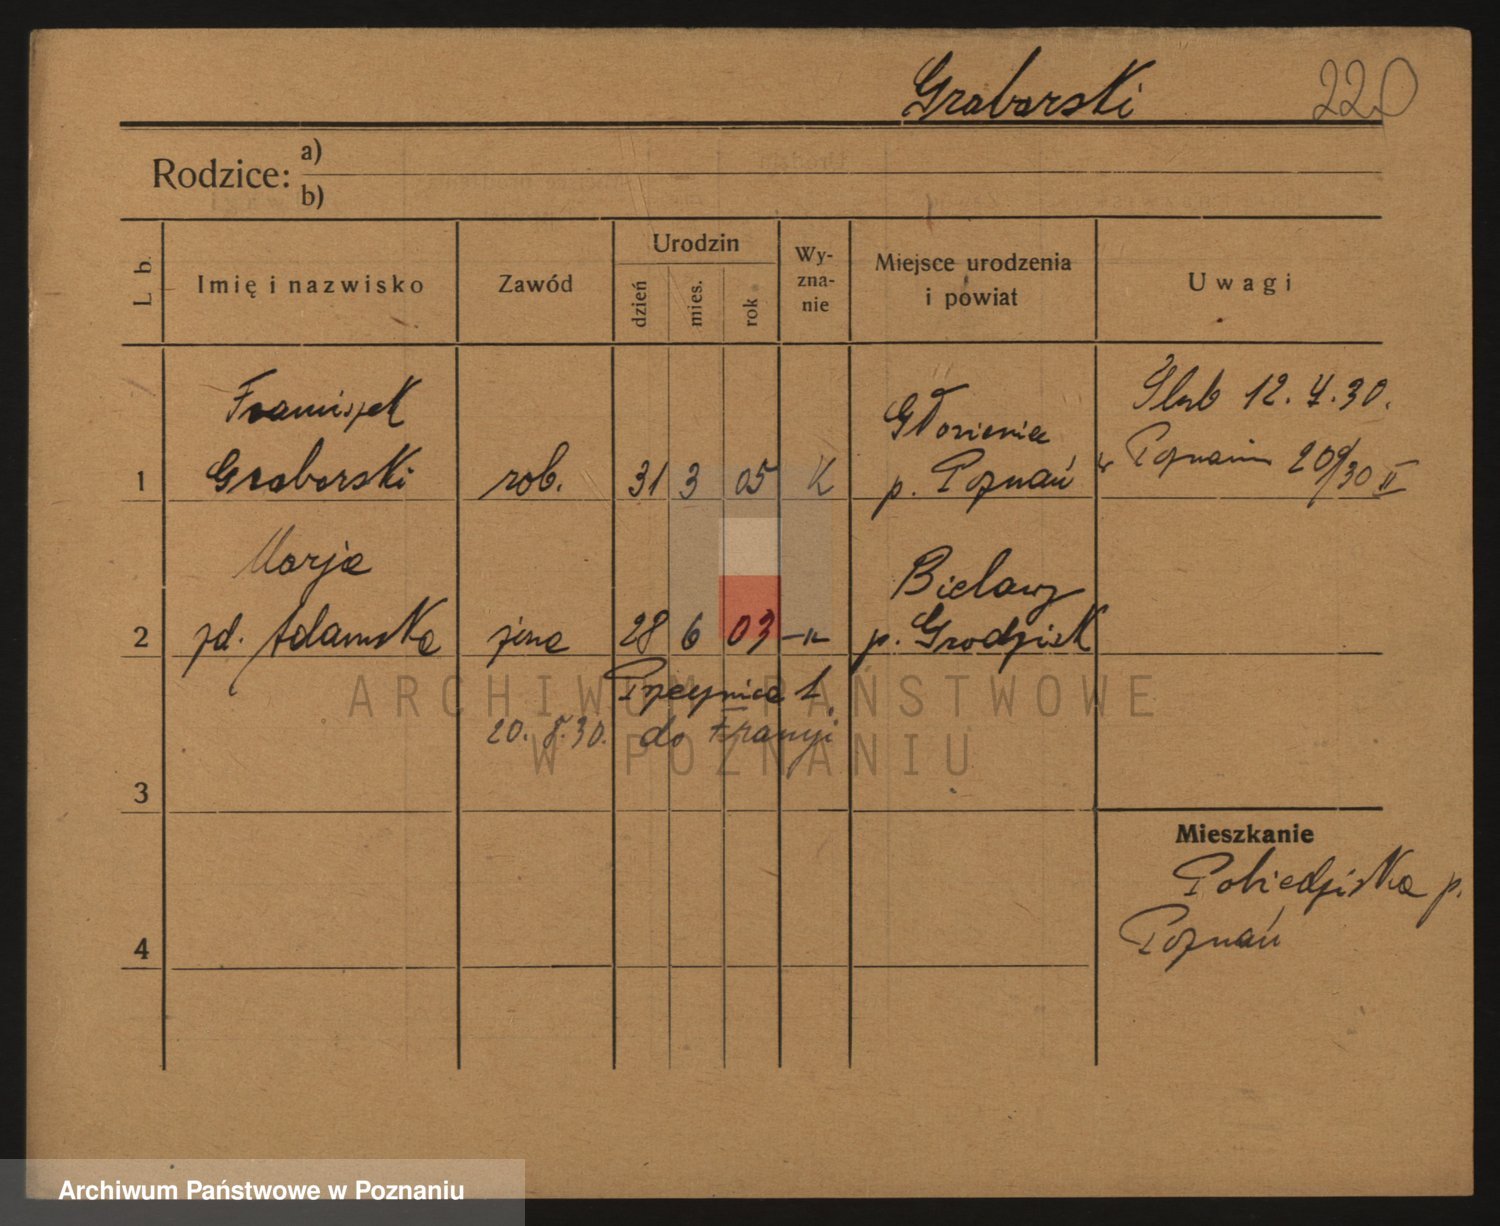 Grabarski 220
Rodzice: a)
b)
L. b. Imię i nazwisko Zawód Urodzin dzień mies. rok Wy-zna-nie Miejsce urodzenia i powiat Uwagi
Franciszek
Głozienia
Ślub 12.4.30.
w Poznaniu 209/30 II
1 Grabarski rob. 31 3 05 K p. Poznań
Marja
Bielawy
2 zd. Adamska żona 28 6 03 -"- p. Grodzisk
Pszczynica 1
20.8.30. do Francji
3
Mieszkanie
Pobiedziska p.
Poznań
4
ARCHIWUM PAŃSTWOWE
W POZNANIU
Archiwum Państwowe w Poznaniu